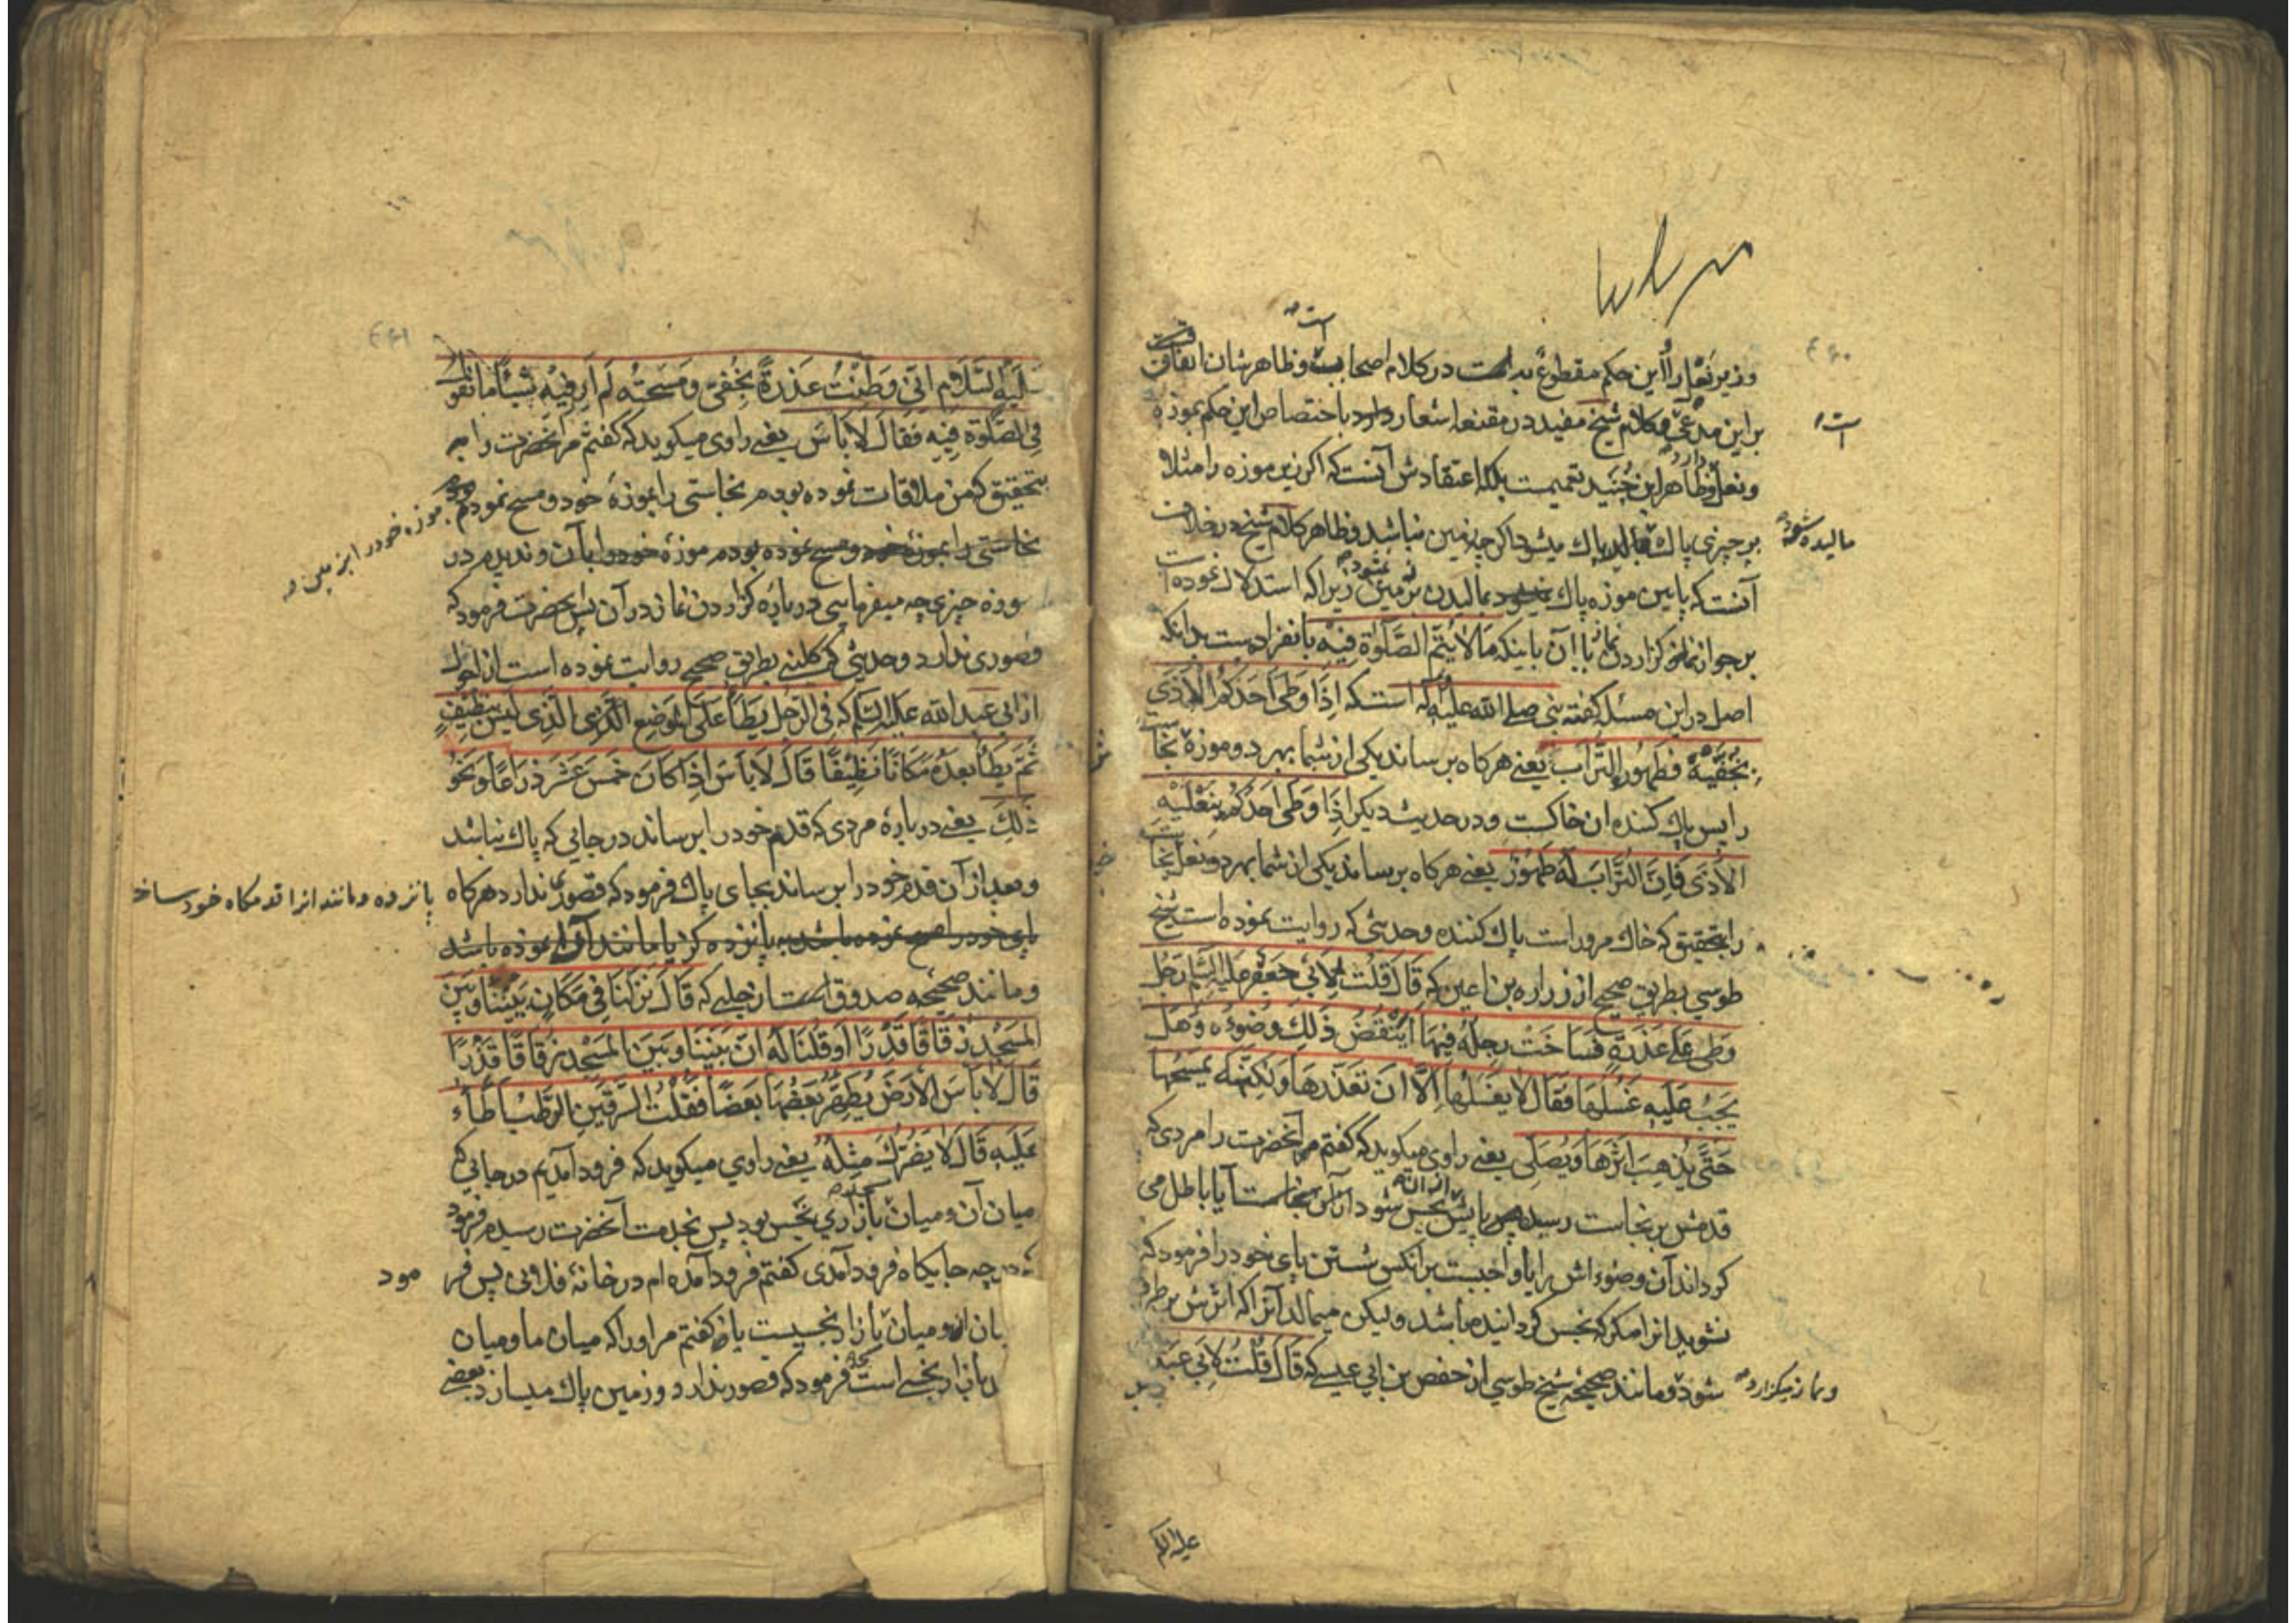 وزیر نعل را این حکم مقطوع به است در کلام اصحاب و ظاهرشان اتفاقست
بر این مدعی و کلام شیخ مفید در مقنعه اشعار دارد باختصاص این حکم بموزه
و نعل و ظاهر ابن جنید تعمیمست بلکه اعتقادش آنست که اگر زیر موزه را مثلا
بر چیزی پاك بمالد پاك میشود اگر چه زمین نباشد و ظاهر کلام شیخ در خلاف
مالیده شود
آنست که پایین موزه پاك نمیشود بمالیدن بزمین زیرا که استدلال نموده است
بر جواز نماز گزاردن با آن باینکه مَا لَا یُتِمُّ الصَّلوٰةَ فِیْهِ بانفراد ست بدانکه
اصل در این مسئله گفته نبی صلی الله علیه و آله است که اِذَا وَطِیَ اَحَدُکُمُ الْاَذٰی
بِخُفَّیْهِ فَطَهُوْرُهُ التُّرَابُ یعنی هرگاه برساند یکی از شما بهر دو موزه نجاست
را پس پاك کننده ان خاکست و در حدیث دیگر اِذَا وَطِیَ اَحَدُکُمْ بِنَعْلَیْهِ
الْاَذٰی فَاِنَّ التُّرَابَ لَهُ طَهُوْرٌ یعنی هرگاه برساند یکی از شما بهر دو نعل نجاست
را بتحقیق که خاك مر ورا است پاك کننده و حدیثی که روایت نموده است شیخ
طوسی بطریق صحیح از زراره بن اعین که قَالَ قُلْتُ لِاَبِیْ جَعْفَرٍ عَلَیْهِ السَّلَم رَجُلٌ
وَطِیَ عَلٰی عَذِرَةٍ فَسَاخَتْ رِجْلُهُ فِیْهَا اَیَنْقُضُ ذٰلِكَ وُضُوْءَهُ وَهَلْ
یَجِبُ عَلَیْهِ غَسْلُهَا فَقَالَ لَا یَغْسِلُهَا اِلَّا اَنْ یَقْذَرَهَا وَلٰکِنَّهُ یَمْسَحُهَا
حَتّٰی یَذْهَبَ اَثَرُهَا وَیُصَلِّی یعنی راوی میگوید که گفتم مر آنحضرت را مردی که
قدمش بر نجاست رسیده پایش نجس شود از آن نجاست آیا باطل می
گرداند آن وضوء اش را یا واجبست بر انکس شستن پای خود را فرمود که
نشوید انرا مگر که نجس گردانیده باشد و لیکن میمالد آنرا که اثرش بر طرف
شود و مانند صحیحه شیخ طوسی از حفص بن ابی عیسی که قَالَ قُلْتُ لِاَبِیْ عَبْدِ
و نماز میگزارد
عَلَیْهِ السَّلَامِ اِنِّی وَطِئْتُ عَذِرَةً بِخُفِّی وَمَسَحْتُهُ لَمْ اَرَ فِیْهِ شَیْئًا مَا تَقُوْلُ
فِی الصَّلٰوةِ فِیْهِ فَقَالَ لَا بَاْسَ یعنی راوی میگوید که گفتم مر آنحضرت را به
تحقیق که من ملاقات نموده بودم نجاستی را بموزهٔ خود و مسح نمودم
نجاستی را بموزهٔ خود و مسح نموده بودم موزهٔ خود را بآن و ندیدم در
موزه چیزی چه میفرمایی درباره گزاردن نماز در آن پس حضرت فرمود که
قصوری ندارد و حدیثی که کلینی بطریق صحیح روایت نموده است از احول
از ابی عبد الله علیه السلم که فِی الرَّجُلِ یَطَأُ عَلَی الْمَوْضِعِ الَّذِی لَیْسَ بِنَظِیْفٍ
ثُمَّ یَطَأُ بَعْدَهُ مَکَانًا نَظِیْفًا قَالَ لَا بَاْسَ اِذَا کَانَ خَمْسَ عَشَرَ ذِرَاعًا وَنَحْوَ
ذٰلِكَ یعنی دربارهٔ مردی که قدم خود را برساند در جایی که پاك نباشد
و بعد از آن قدم خود را برساند بجای پاك فرمود که قصور ندارد هرگاه
پانزده و مانند انرا قدمگاه خود ساخ
پای خود را مسح نموده باشد به پانزده گز یا مانند آن نموده باشد
و مانند صحیحه صدوق است از حلبی که قَالَ نَزَلْنَا فِی مَکَانٍ بَیْنَنَا وَبَیْنَ
الْمَسْجِدِ زُقَاقًا قَذِرًا اَوْ قُلْنَا لَهُ اِنَّ بَیْنَنَا وَبَیْنَ الْمَسْجِدِ زُقَاقًا قَذِرًا
قَالَ لَا بَاْسَ الْاَرْضُ یُطَهِّرُ بَعْضُهَا بَعْضًا فَقُلْتُ السِّرْقِیْنُ الرَّطْبُ اَطَأُ
عَلَیْهِ قَالَ لَا یَضُرُّكَ مِثْلُهُ یعنی راوی میگوید که فرود آمدیم در جایی که
میان آن و میان بازاری نجس بود پس بخدمت آنحضرت رسیدم فرمود
در چه جایگاه فرود آمدی گفتم فرود آمده ام در خانهٔ فلانی پس فر
مود
و میان بازار نجسیست یا گفتم مر اورا که میان ما و میان
بازار نجسی است فرمود که قصور ندارد و زمین پاك میسازد بعضی